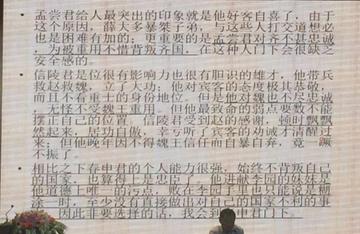 孟尝君给人最突出的印象就是他好客自喜了，由于
这个原因，薛大多暴桀子弟，与这些人打交道想必
也是困难有加的；更重要的是孟尝君对齐不甚忠诚
，为被重用不惜背叛齐国，在这种人门下会很缺乏
安全感的。
信陵君是位很有影响力也很有胆识的雄才，他带兵
救赵救魏，立了大功；他对宾客的态度极其恭敬，
而且不看重士的身份地位。但是他对魏也不尽忠诚
，无怪不受魏王重用。但他最致命的弱点要数不能
摆正自己的位置，信陵君受到赵的感谢，顿时飘飘
然起来，居功自傲，幸亏听了宾客的劝诫才清醒过
来；但他晚年因不得魏王信任而自暴自弃，竟一蹶
不振了。
相比之下春申君的个人能力很强，始终不背叛自己
的国家，也算得上是忠臣了。他进献李园的妹妹是
他道德上唯一的污点，败在李园手里也只能说是糊
涂一时，至少没有直接做出对自己的国家不利的事
因此非要选择的话，我会到春申君门下。